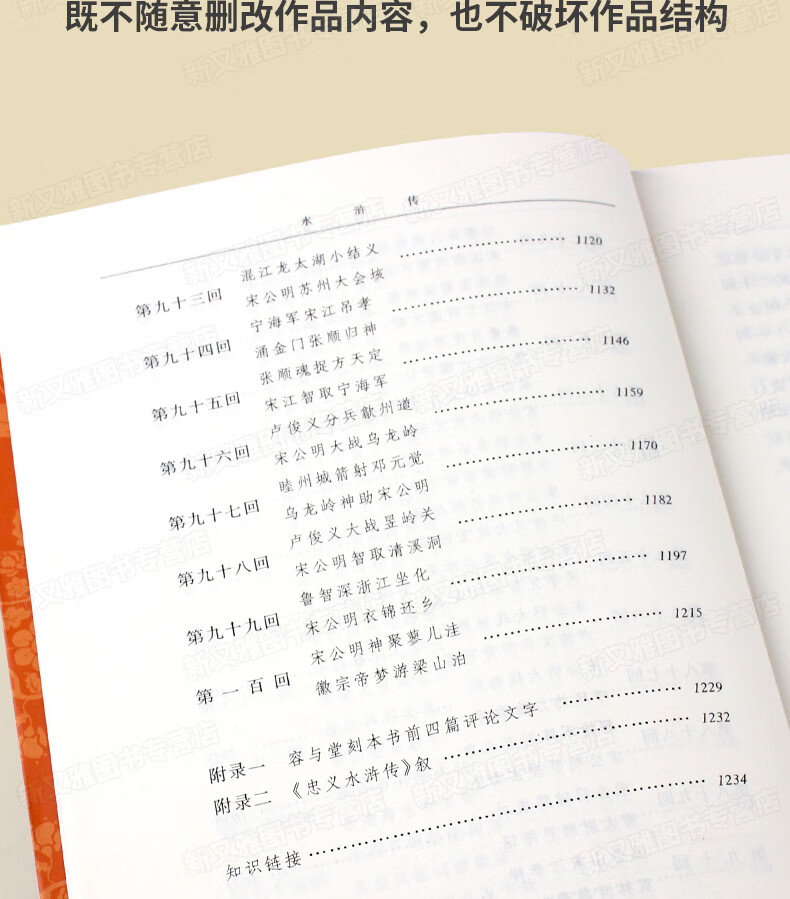 既不随意删改作品内容，也不破坏作品结构
水 浒 传
混江龙太湖小结义 ………………………… 1120
第九十三回 宋公明苏州大会垓
宁海军宋江吊孝 ………………………… 1132
第九十四回 涌金门张顺归神
张顺魂捉方天定 ………………………… 1146
第九十五回 宋江智取宁海军
卢俊义分兵歙州道 ………………………… 1159
第九十六回 宋公明大战乌龙岭
睦州城箭射邓元觉 ………………………… 1170
第九十七回 乌龙岭神助宋公明
卢俊义大战昱岭关 ………………………… 1182
第九十八回 宋公明智取清溪洞
鲁智深浙江坐化 ………………………… 1197
第九十九回 宋公明衣锦还乡
宋公明神聚蓼儿洼 ………………………… 1215
第一百回 徽宗帝梦游梁山泊
附录一 容与堂刻本书前四篇评论文字 ……………… 1229
附录二 《忠义水浒传》叙 ………………………… 1232
知识链接 ……………………………………………… 1234
新文雅图书专营店